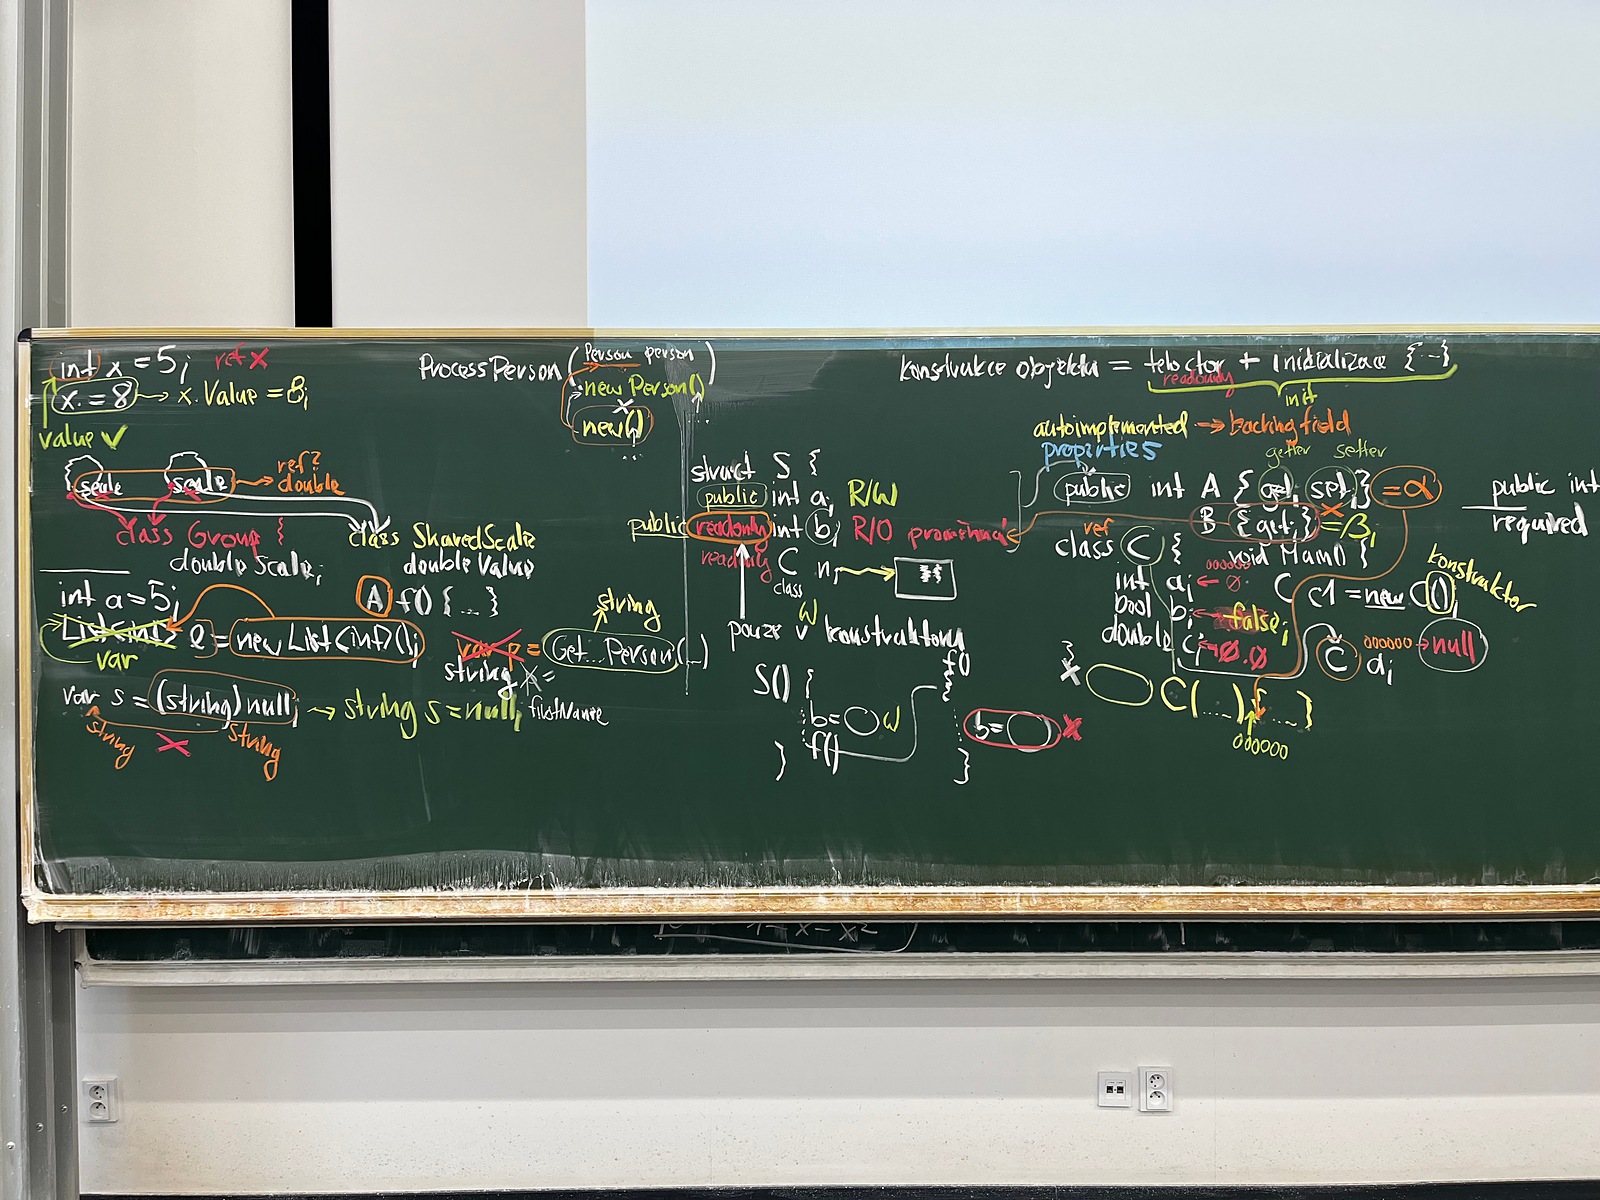 int x = 5; ref x
x. = 8 → x.Value = 8;
value v
scale scale → ref? double
class Group {
double Scale;
class SharedScale
double Value
int a = 5;
List<int> l = new List<int>();
var
A f() { ... }
var s = (string) null; → string s = null;
string x string
ProcessPerson (Person person)
new Person()
x
new()
string
var p = Get...Person(...)
string x =
firstName
struct S {
public int a; R/W
public readonly int b; R/O proměnná
readonly C n;
class
W
pouze v konstruktoru
S() {
b = W
f()
}
f()
b = x
}
konstrukce objektu = + inicializace {...}
readonly
init
autoimplemented → backing field
properties
getter setter
public int A { get; set; } = α
B { get; } = β;
ref
class C {
void Mam() {
000000
int a; ← 0
bool b; ← false;
double c; ← 0.0
C c1 = new C();
konstruktor
C d; 000000 → null
}
x
C(....) { .... }
000000
public int
required
1 - x - x²